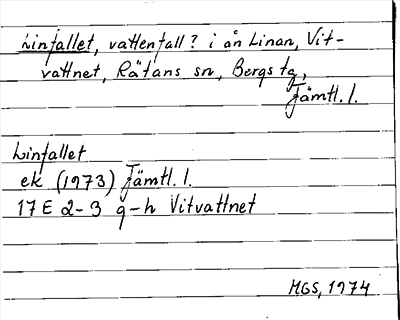 Linfallet, vattenfall? i ån Linan, Vit-
vattnet, Rätans sn, Bergs tg,
Jämtl. l.
Linfallet
ek (1973) Jämtl. l.
17E 2-3 g-h Vitvattnet
MGS, 1974